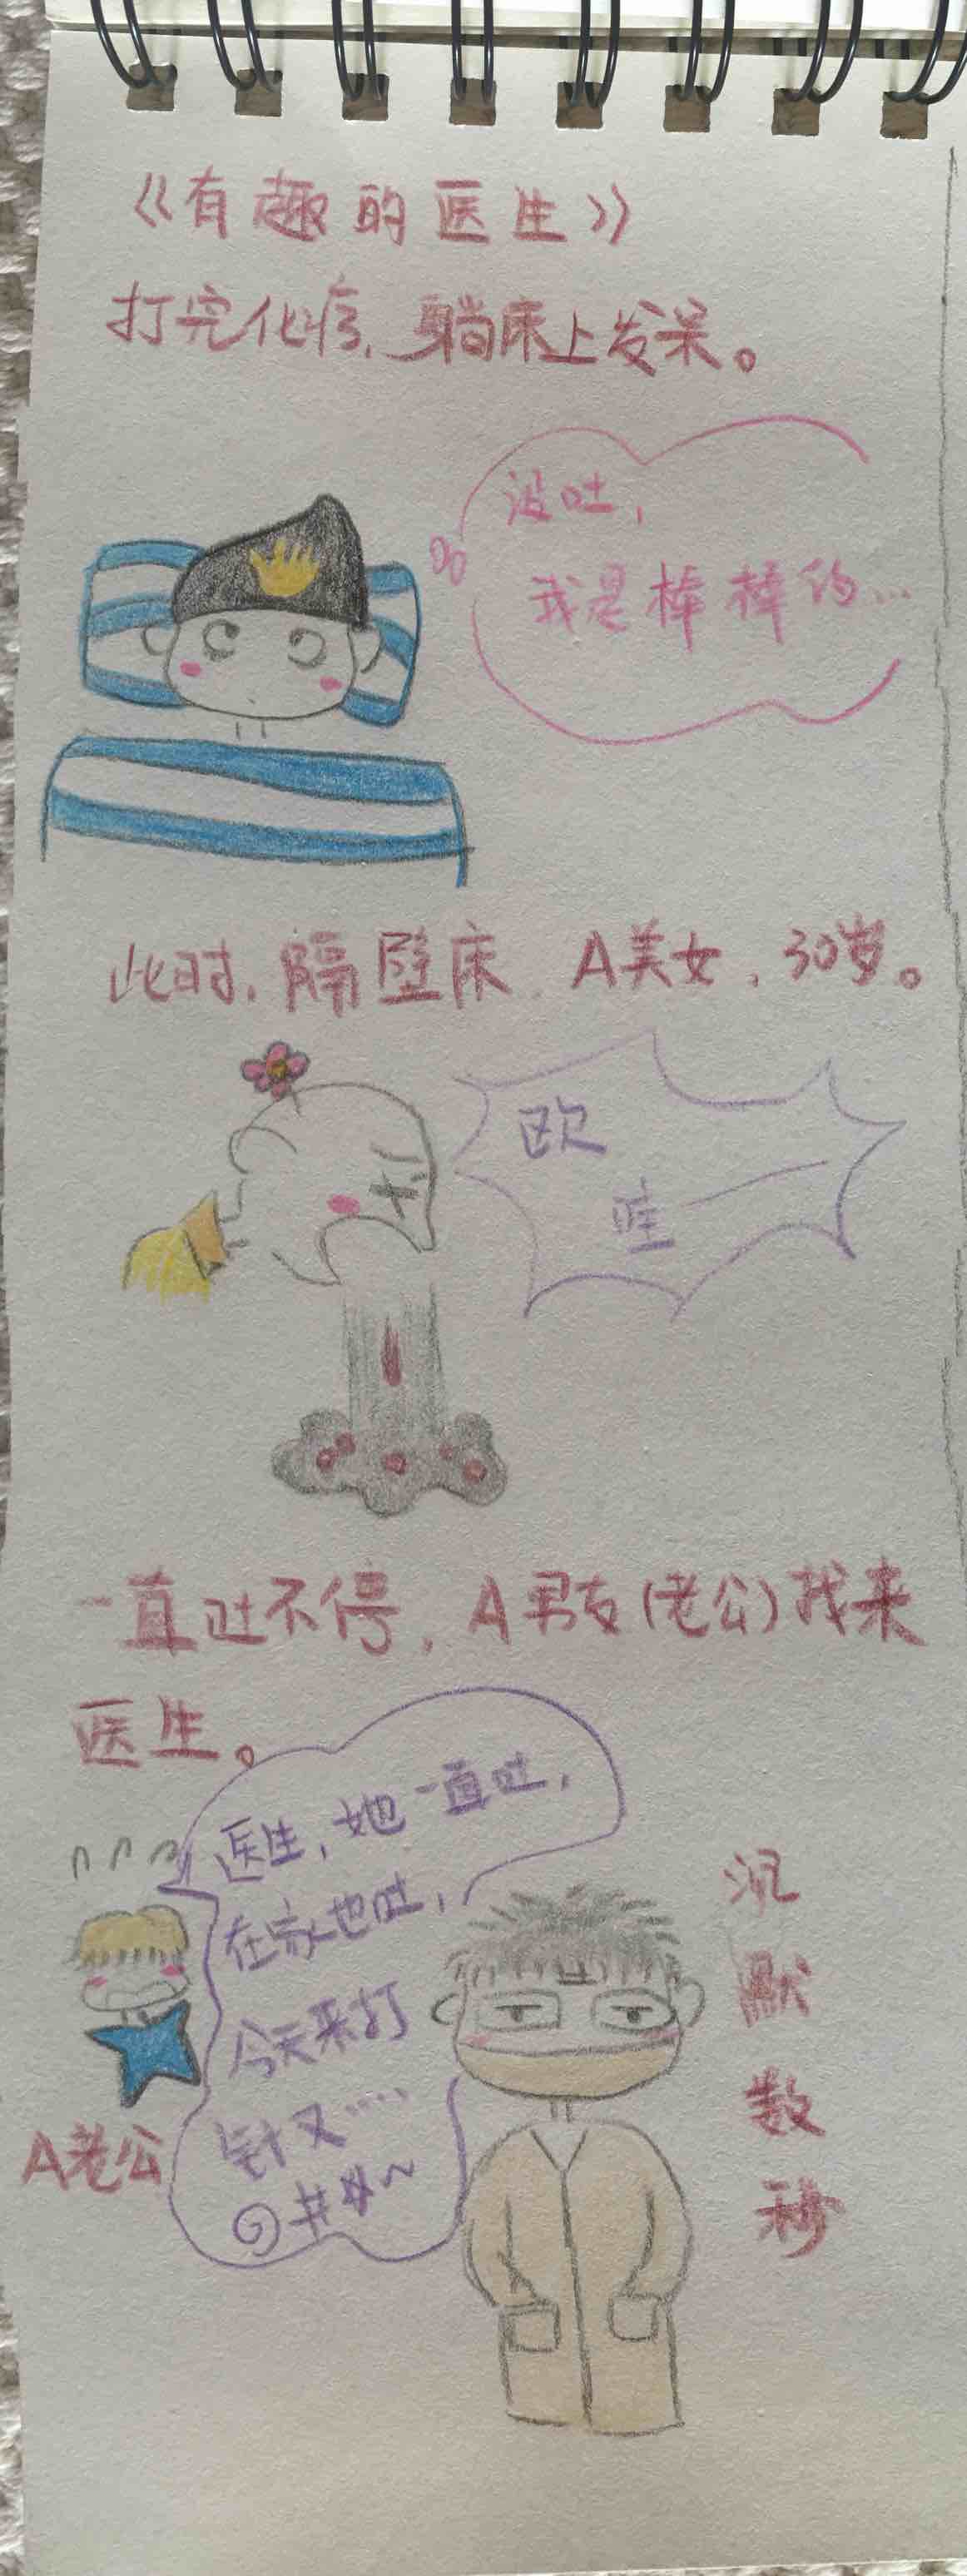 《有趣的医生》
打完化疗,躺床上发呆。
没吐,
我是棒棒的...
此时,隔壁床,A美女,30岁。
欧
哇
一直吐不停,A男友(老公)找来
医生。
医生,她一直吐,
在家也吐,
今天来打
针又.....
@# #~
A老公
沉
默
数
秒